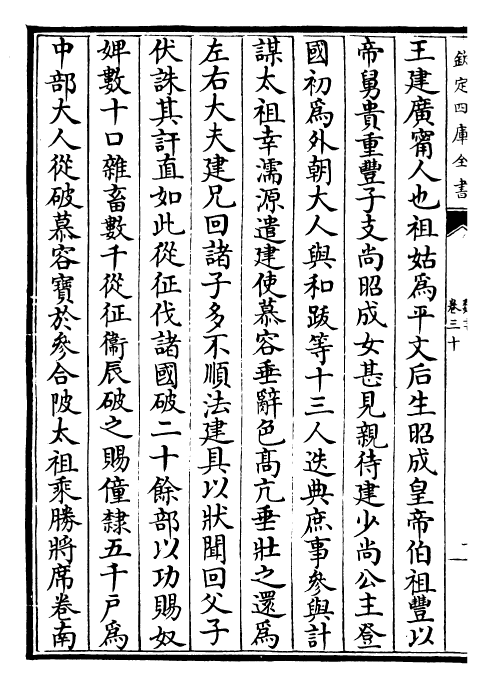 欽定四庫全書
卷三十
王建廣甯人也祖姑爲平文后生昭成皇帝伯祖豐以
帝舅貴重豐子支尚昭成女甚見親待建少尚公主登
國初爲外朝大人與和跋等十三人迭典庶事參與計
謀太祖幸濡源遣建使慕容垂辭色髙亢垂壯之還爲
左右大夫建兄回諸子多不順法建具以狀聞回父子
伏誅其訐直如此從征伐諸國破二十餘部以功賜奴
婢數十口雜畜數千從征衞辰破之賜僮隸五千戸爲
中部大人從破慕容寶於參合陂太祖乘勝將席卷南